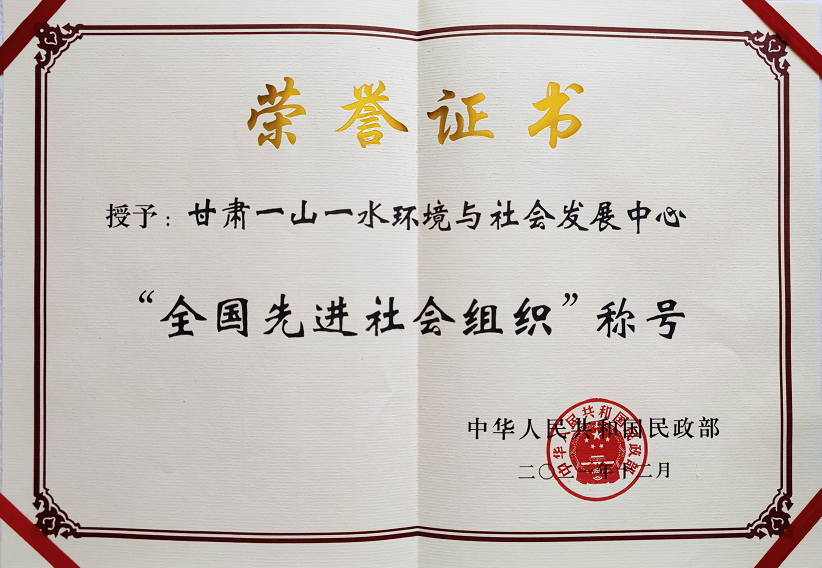 荣誉证书
授予：甘肃一山一水环境与社会发展中心
“全国先进社会组织”称号
中华人民共和国民政部
二〇二一年十二月
中华人民共和国民政部